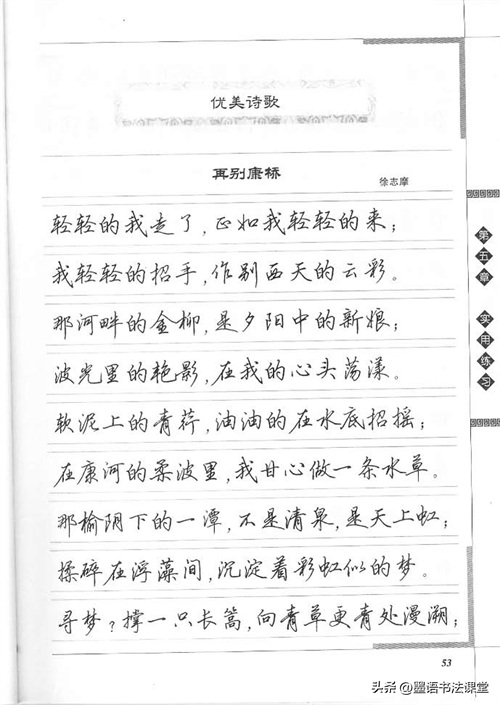 优美诗歌
再别康桥
徐志摩
轻轻的我走了，正如我轻轻的来；
我轻轻的招手，作别西天的云彩。
那河畔的金柳，是夕阳中的新娘；
波光里的艳影，在我的心头荡漾。
软泥上的青荇，油油的在水底招摇；
在康河的柔波里，我甘心做一条水草。
那榆阴下的一潭，不是清泉，是天上虹；
揉碎在浮藻间，沉淀着彩虹似的梦。
寻梦？撑一只长篙，向青草更青处漫溯；
第五章 实用练习
53
头条 @墨语书法课堂